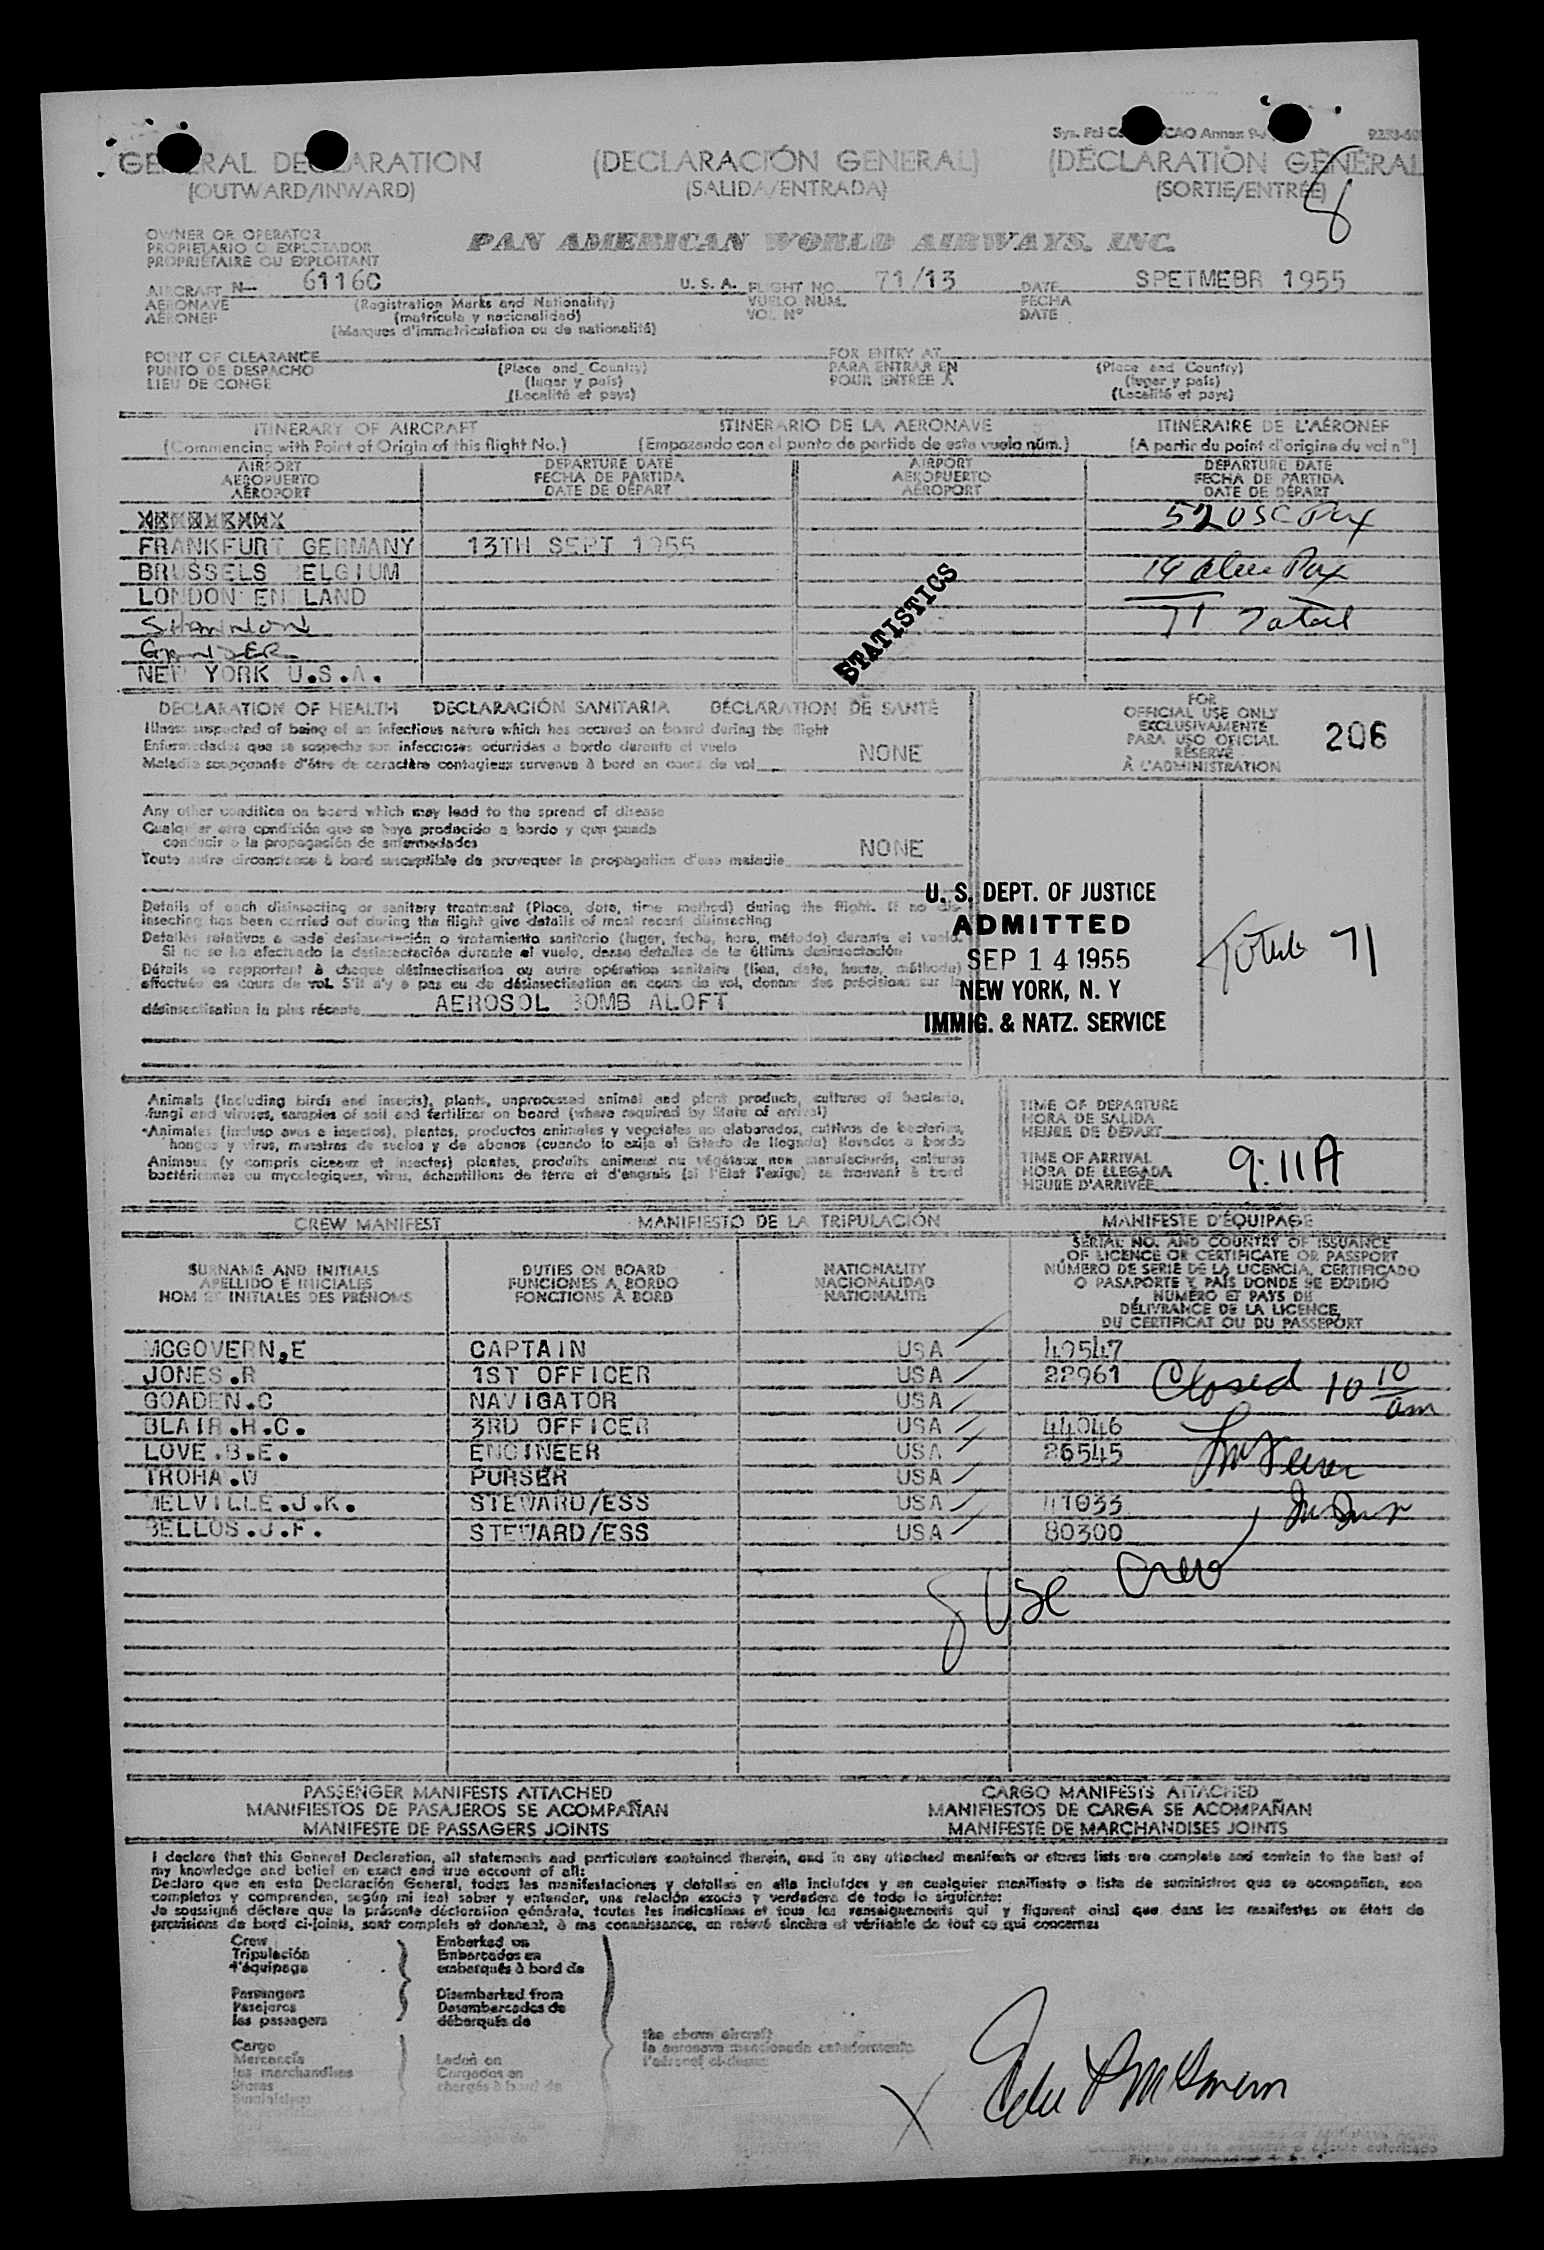 GENERAL DECLARATION (DECLARACIÓN GENERAL) (DÉCLARATION GÉNÉRAL
(OUTWARD/INWARD) (SALIDA/ENTRADA) (SORTIE/ENTRÉE)
8
OWNER OR OPERATOR
PROPIETARIO O EXPLOTADOR
PROPRIÉTAIRE OU EXPLOITANT
PAN AMERICAN WORLD AIRWAYS, INC.
AIRCRAFT N- 6116C U. S. A. FLIGHT NO. 71/13 DATE SPETMEBR 1955
AERONAVE (Registration Marks and Nationality) VUELO NÚM. FECHA
AÉRONEF (matrícula y nacionalidad) VOL Nº DATE
(Marques d'immatriculation ou de nationalité)
POINT OF CLEARANCE FOR ENTRY AT
PUNTO DE DESPACHO (Place and Country) PARA ENTRAR EN (Place and Country)
LIEU DE CONGE (lugar y país) POUR ENTRÉE À (lugar y país)
(Localité et pays) (Localité et pays)
ITINERARY OF AIRCRAFT ITINERARIO DE LA AERONAVE ITINÉRAIRE DE L'AÉRONEF
(Commencing with Point of Origin of this flight No.) (Empezando con el punto de partida de este vuelo núm.) (A partir du point d'origine du vol nº)
AIRPORT DEPARTURE DATE AIRPORT DEPARTURE DATE
AEROPUERTO FECHA DE PARTIDA AEROPUERTO FECHA DE PARTIDA
AÉROPORT DATE DE DÉPART AÉROPORT DATE DE DÉPART
52 USC Pax
FRANKFURT GERMANY 13TH SEPT 1955
BRUSSELS BELGIUM 19 alien Pax
LONDON ENGLAND
SHANNON 71 Total
GANDER
NEW YORK U.S.A.
STATISTICS
DECLARATION OF HEALTH DECLARACIÓN SANITARIA DÉCLARATION DE SANTÉ
Illness suspected of being of an infectious nature which has occured on board during the flight
Enfermedades que se sospecha son infecciosas ocurridas a bordo durante el vuelo
Maladie soupçonnée d'être de caractère contagieux survenue à bord en cours de vol NONE
FOR
OFFICIAL USE ONLY
EXCLUSIVAMENTE
PARA USO OFICIAL
RÉSERVÉ
À L'ADMINISTRATION
206
Any other condition on board which may lead to the spread of disease
Cualquier otra condición que se haya producido a bordo y que pueda
conducir a la propagación de enfermedades
Toute autre circonstance à bord susceptible de provoquer la propagation d'une maladie NONE
Details of each disinsecting or sanitary treatment (Place, date, time method) during the flight. If no dis-
insecting has been carried out during the flight give details of most recent disinsecting
Detalles relativos a cada desinsectación o tratamiento sanitario (lugar, fecha, hora, método) durante el vuelo.
Si no se ha efectuado la desinsectación durante el vuelo, dense detalles de la última desinsectación
Détails se rapportant à chaque désinsectisation ou autre opération sanitaire (lieu, date, heure, méthode)
effectuée en cours de vol. S'il n'y a pas eu de désinsectisation en cours de vol, donner des précisions sur la
désinsectisation la plus récente AEROSOL BOMB ALOFT
U. S. DEPT. OF JUSTICE
ADMITTED
SEP 14 1955
NEW YORK, N. Y
IMMIG. & NATZ. SERVICE
Total 71
Animals (including birds and insects), plants, unprocessed animal and plant products, cultures of bacteria,
fungi and viruses, samples of soil and fertilizer on board (where required by State of arrival)
Animales (incluso aves e insectos), plantas, productos animales y vegetales no elaborados, cultivos de bacterias,
hongos y virus, muestras de suelos y de abonos (cuando lo exija el Estado de llegada) llevados a bordo
Animaux (y compris oiseaux et insectes) plantes, produits animaux ou végétaux non manufacturés, cultures
bactériennes ou mycologiques, virus, échantillons de terre et d'engrais (si l'Etat l'exige) se trouvant à bord
TIME OF DEPARTURE
HORA DE SALIDA
HEURE DE DÉPART
TIME OF ARRIVAL
HORA DE LLEGADA
HEURE D'ARRIVÉE
9:11A
CREW MANIFEST MANIFIESTO DE LA TRIPULACIÓN MANIFESTE D'ÉQUIPAGE
SURNAME AND INITIALS
APELLIDO E INICIALES
NOM ET INITIALES DES PRÉNOMS
DUTIES ON BOARD
FUNCIONES A BORDO
FONCTIONS À BORD
NATIONALITY
NACIONALIDAD
NATIONALITÉ
SERIAL NO. AND COUNTRY OF ISSUANCE
OF LICENCE OR CERTIFICATE OR PASSPORT
NÚMERO DE SERIE DE LA LICENCIA, CERTIFICADO
O PASAPORTE Y PAÍS DONDE SE EXPIDIÓ
NUMÉRO ET PAYS DE
DÉLIVRANCE DE LA LICENCE,
DU CERTIFICAT OU DU PASSEPORT
MCGOVERN,E CAPTAIN USA 49547
JONES.R 1ST OFFICER USA 22961
GOADEN.C NAVIGATOR USA
BLAIR.H.C. 3RD OFFICER USA 44046
LOVE.B.E. ENGINEER USA 26545
TROHA.W PURSER USA
MELVILLE.J.K. STEWARD/ESS USA 41033
BELLOS.J.F. STEWARD/ESS USA 80300
Closed 10 10 am
8 USC Crew
PASSENGER MANIFESTS ATTACHED CARGO MANIFESTS ATTACHED
MANIFIESTOS DE PASAJEROS SE ACOMPAÑAN MANIFIESTOS DE CARGA SE ACOMPAÑAN
MANIFESTE DE PASSAGERS JOINTS MANIFESTE DE MARCHANDISES JOINTS
I declare that this General Declaration, all statements and particulars contained therein, and in any attached manifests or stores lists are complete and contain to the best of
my knowledge and belief an exact and true account of all:
Declaro que en esta Declaración General, todas las manifestaciones y detalles en ella incluídos y en cualquier manifiesto o lista de suministros que se acompañen, son
completos y comprenden, según mi leal saber y entender, una relación exacta y verdadera de todo lo siguiente:
Je soussigné déclare que la présente déclaration générale, toutes les indications et tous les renseignements qui y figurent ainsi que dans les manifestes ou états de
provisions de bord ci-joints, sont complets et donnent, à ma connaissance, un relevé sincère et véritable de tout ce qui concerne:
Crew Embarked on
Tripulación Embarcados en
l'équipage embarqués à bord de
Passengers Disembarked from
Pasajeros Desembarcados de
les passagers débarqués de
the above aircraft
la aeronave mencionada anteriormente
l'aéronef ci-dessus
Cargo
Mercancía Laden on
les marchandises Cargados en
Stores chargés à bord de
Suministros
X